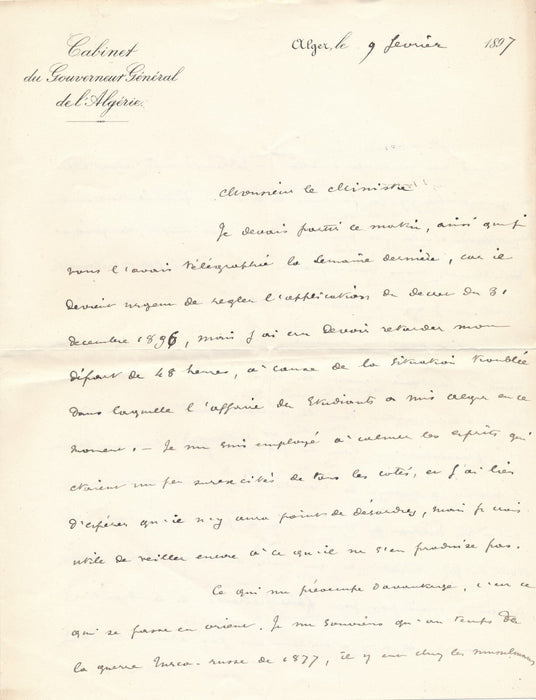 Cabinet
du Gouverneur Général
de l'Algérie.
Alger, le 9 février 1897
Monsieur le Ministre
Je devais partir ce matin, ainsi que je
vous l'avais télégraphié la semaine dernière, car il
devient urgent de régler l'application du décret du 31
décembre 1896, mais j'ai cru devoir retarder mon
départ de 48 heures, à cause de la situation troublée
dans laquelle l'affaire des Etudiants a mis Alger en ce
moment. — Je me suis employé à calmer les esprits qui
étaient un peu surexcités de tous les cotés, et j'ai lieu
d'espérer qu'il n'y aura point de désordres, mais je crois
utile de veiller encore à ce qu'il ne s'en produise pas.
Ce qui me préoccupe davantage, c'est ce
qui se passe en orient. Je me souviens qu'au temps de
la guerre Turco-russe de 1877, il y eut chez les musulmans